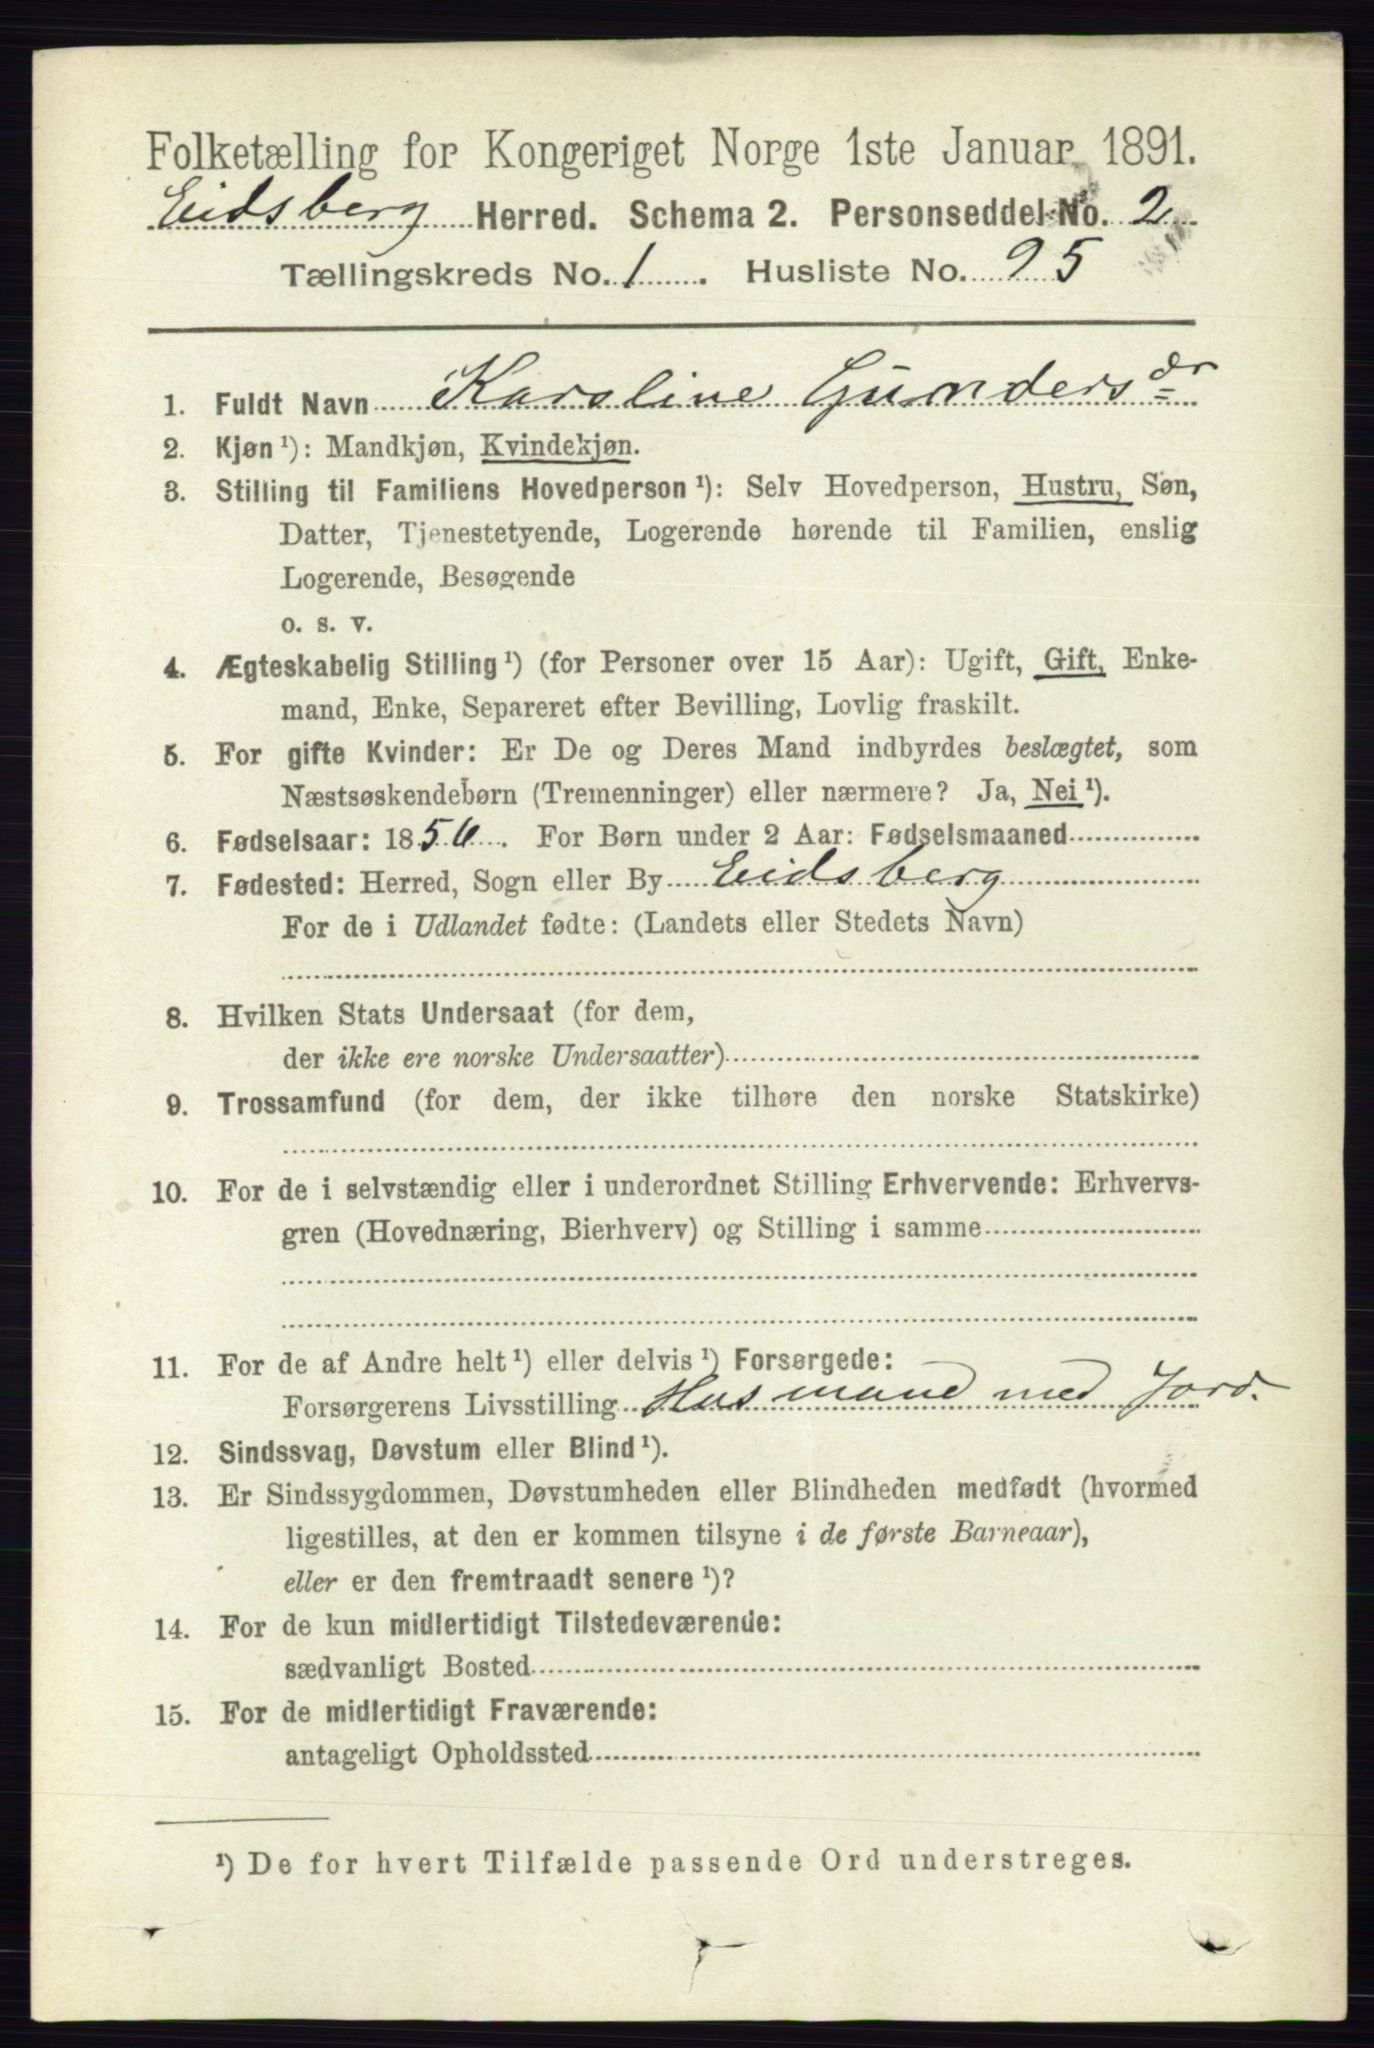 Folketælling for Kongeriget Norge 1ste Januar 1891.
Eidsberg Herred. Schema 2. Personseddel No. 2
Tællingskreds No. 1. Husliste No. 95
1. Fuldt Navn Karoline Gundersdr
2. Kjøn¹): Mandkjøn, Kvindekjøn.
3. Stilling til Familiens Hovedperson¹): Selv Hovedperson, Hustru, Søn,
Datter, Tjenestetyende, Logerende hørende til Familien, enslig
Logerende, Besøgende
o. s. v.
4. Ægteskabelig Stilling¹) (for Personer over 15 Aar): Ugift, Gift, Enke-
mand, Enke, Separeret efter Bevilling, Lovlig fraskilt.
5. For gifte Kvinder: Er De og Deres Mand indbyrdes beslægtet, som
Næstsøskendebørn (Tremenninger) eller nærmere? Ja, Nei¹).
6. Fødselsaar: 1856. For Børn under 2 Aar: Fødselsmaaned
7. Fødested: Herred, Sogn eller By Eidsberg
For de i Udlandet fødte: (Landets eller Stedets Navn)
8. Hvilken Stats Undersaat (for dem,
der ikke ere norske Undersaatter)
9. Trossamfund (for dem, der ikke tilhøre den norske Statskirke)
10. For de i selvstændig eller i underordnet Stilling Erhvervende: Erhvervs-
gren (Hovednæring, Bierhverv) og Stilling i samme
11. For de af Andre helt¹) eller delvis¹) Forsørgede:
Forsørgerens Livsstilling Husmand med Jord.
12. Sindssvag, Døvstum eller Blind¹).
13. Er Sindssygdommen, Døvstumheden eller Blindheden medfødt (hvormed
ligestilles, at den er kommen tilsyne i de første Barneaar),
eller er den fremtraadt senere¹)?
14. For de kun midlertidigt Tilstedeværende:
sædvanligt Bosted
15. For de midlertidigt Fraværende:
antageligt Opholdssted
¹) De for hvert Tilfælde passende Ord understreges.